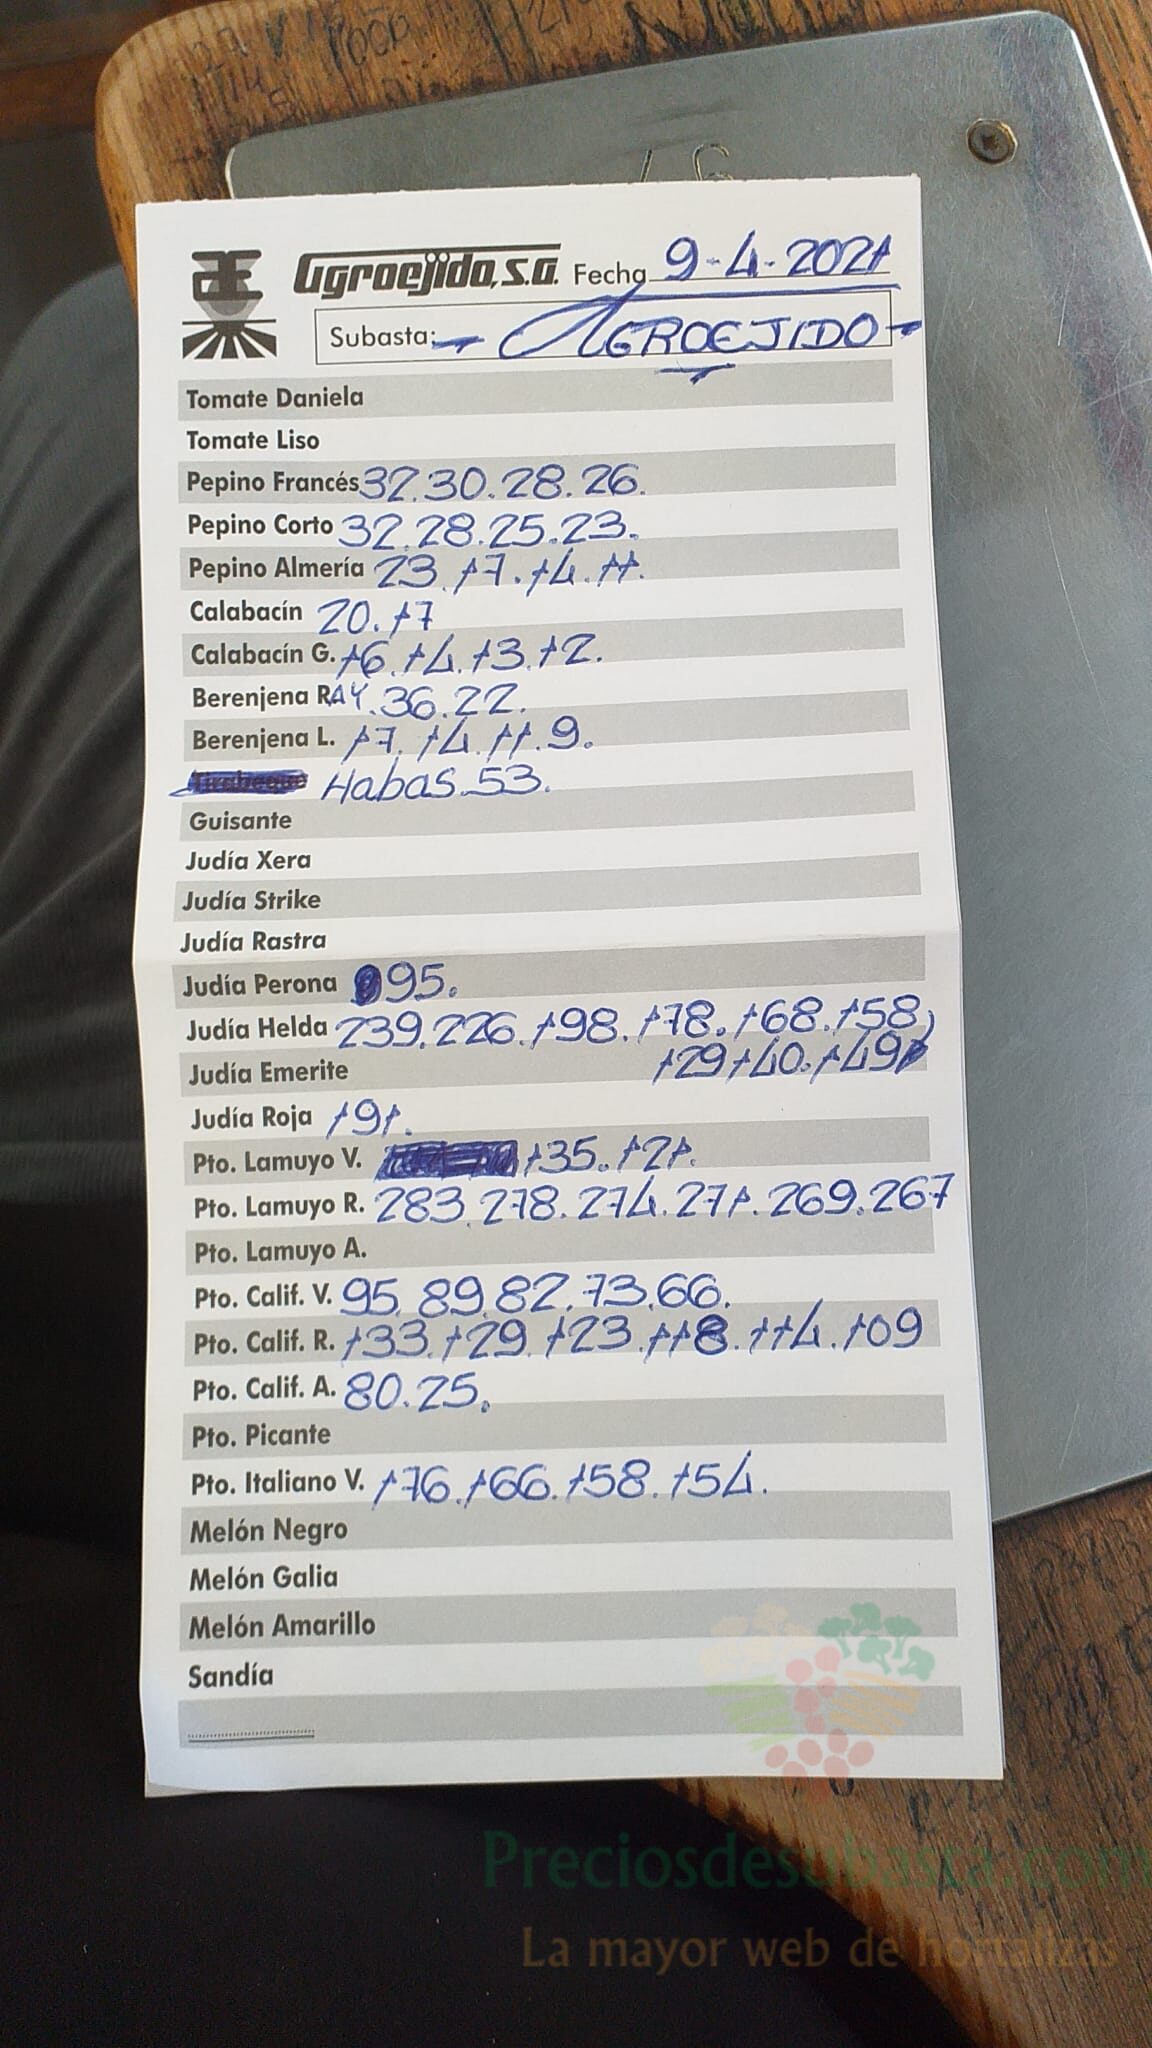 Agroejido, S.A. Fecha 9-4-2021
Subasta: - AGROEJIDO -
Tomate Daniela
Tomate Liso
Pepino Francés 32.30.28.26.
Pepino Corto 32.28.25.23.
Pepino Almería 23.17.14.11.
Calabacín 20.17
Calabacín G. 16.14.13.12.
Berenjena RAY.36.22.
Berenjena L. 17.14.11.9.
Habas.53.
Guisante
Judía Xera
Judía Strike
Judía Rastra
Judía Perona 95.
Judía Helda 239.226.198.178.168.158)
129.140.149
Judía Emerite
Judía Roja 191.
Pto. Lamuyo V. 135.121.
Pto. Lamuyo R. 283.278.274.271.269.267
Pto. Lamuyo A.
Pto. Calif. V. 95.89.82.73.66.
Pto. Calif. R. 133.129.123.118.114.109
Pto. Calif. A. 80.25.
Pto. Picante
Pto. Italiano V. 176.166.158.154.
Melón Negro
Melón Galia
Melón Amarillo
Sandía
Preciosdesubasta.com
La mayor web de hortalizas